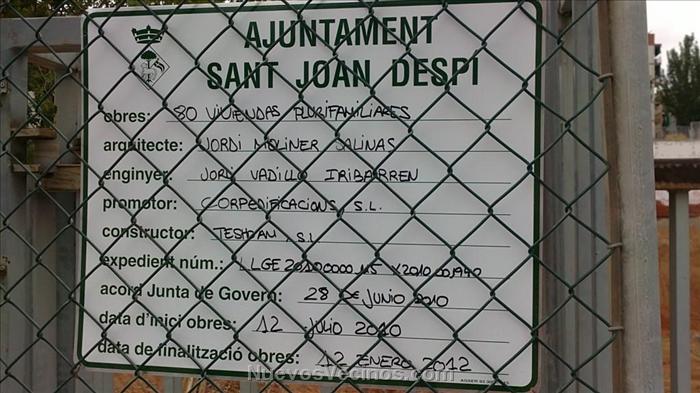 AJUNTAMENT
SANT JOAN DESPÍ
obres: 80 VIVIENDAS PLURIFAMILIARES
arquitecte: JORDI MOLINER SALINAS
enginyer: JORDI VADILLO IRIBARREN
promotor: CORPEDIFICACIONS, S.L.
constructor: TESHDAN, S.L
expedient núm.:
acord Junta de Govern: 28 DE JUNIO 2010
data d'inici obres: 12 JULIO 2010
data de finalització obres: 12 ENERO 2012
NuevosVecinos.com